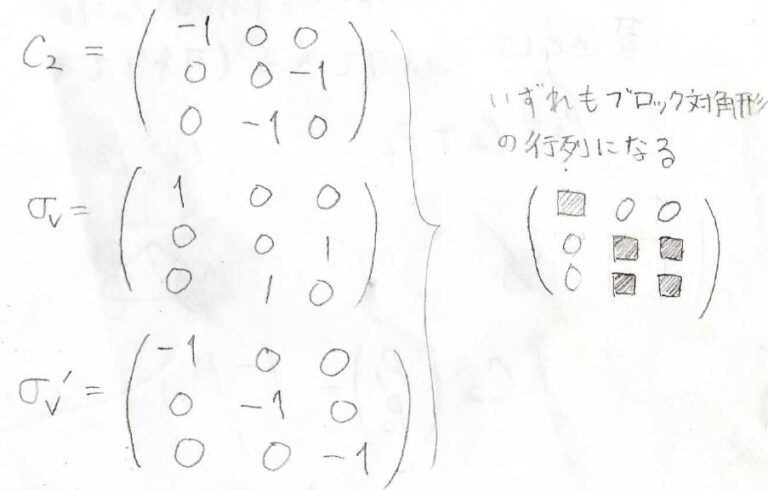 C₂ = ( -1 0 0
0 0 -1
0 -1 0 )
σᵥ = ( 1 0 0
0 0 1
0 1 0 )
σᵥ' = ( -1 0 0
0 -1 0
0 0 -1 )
いずれもブロック対角形
の行列になる
( ■ 0 0
0 ■ ■
0 ■ ■ )